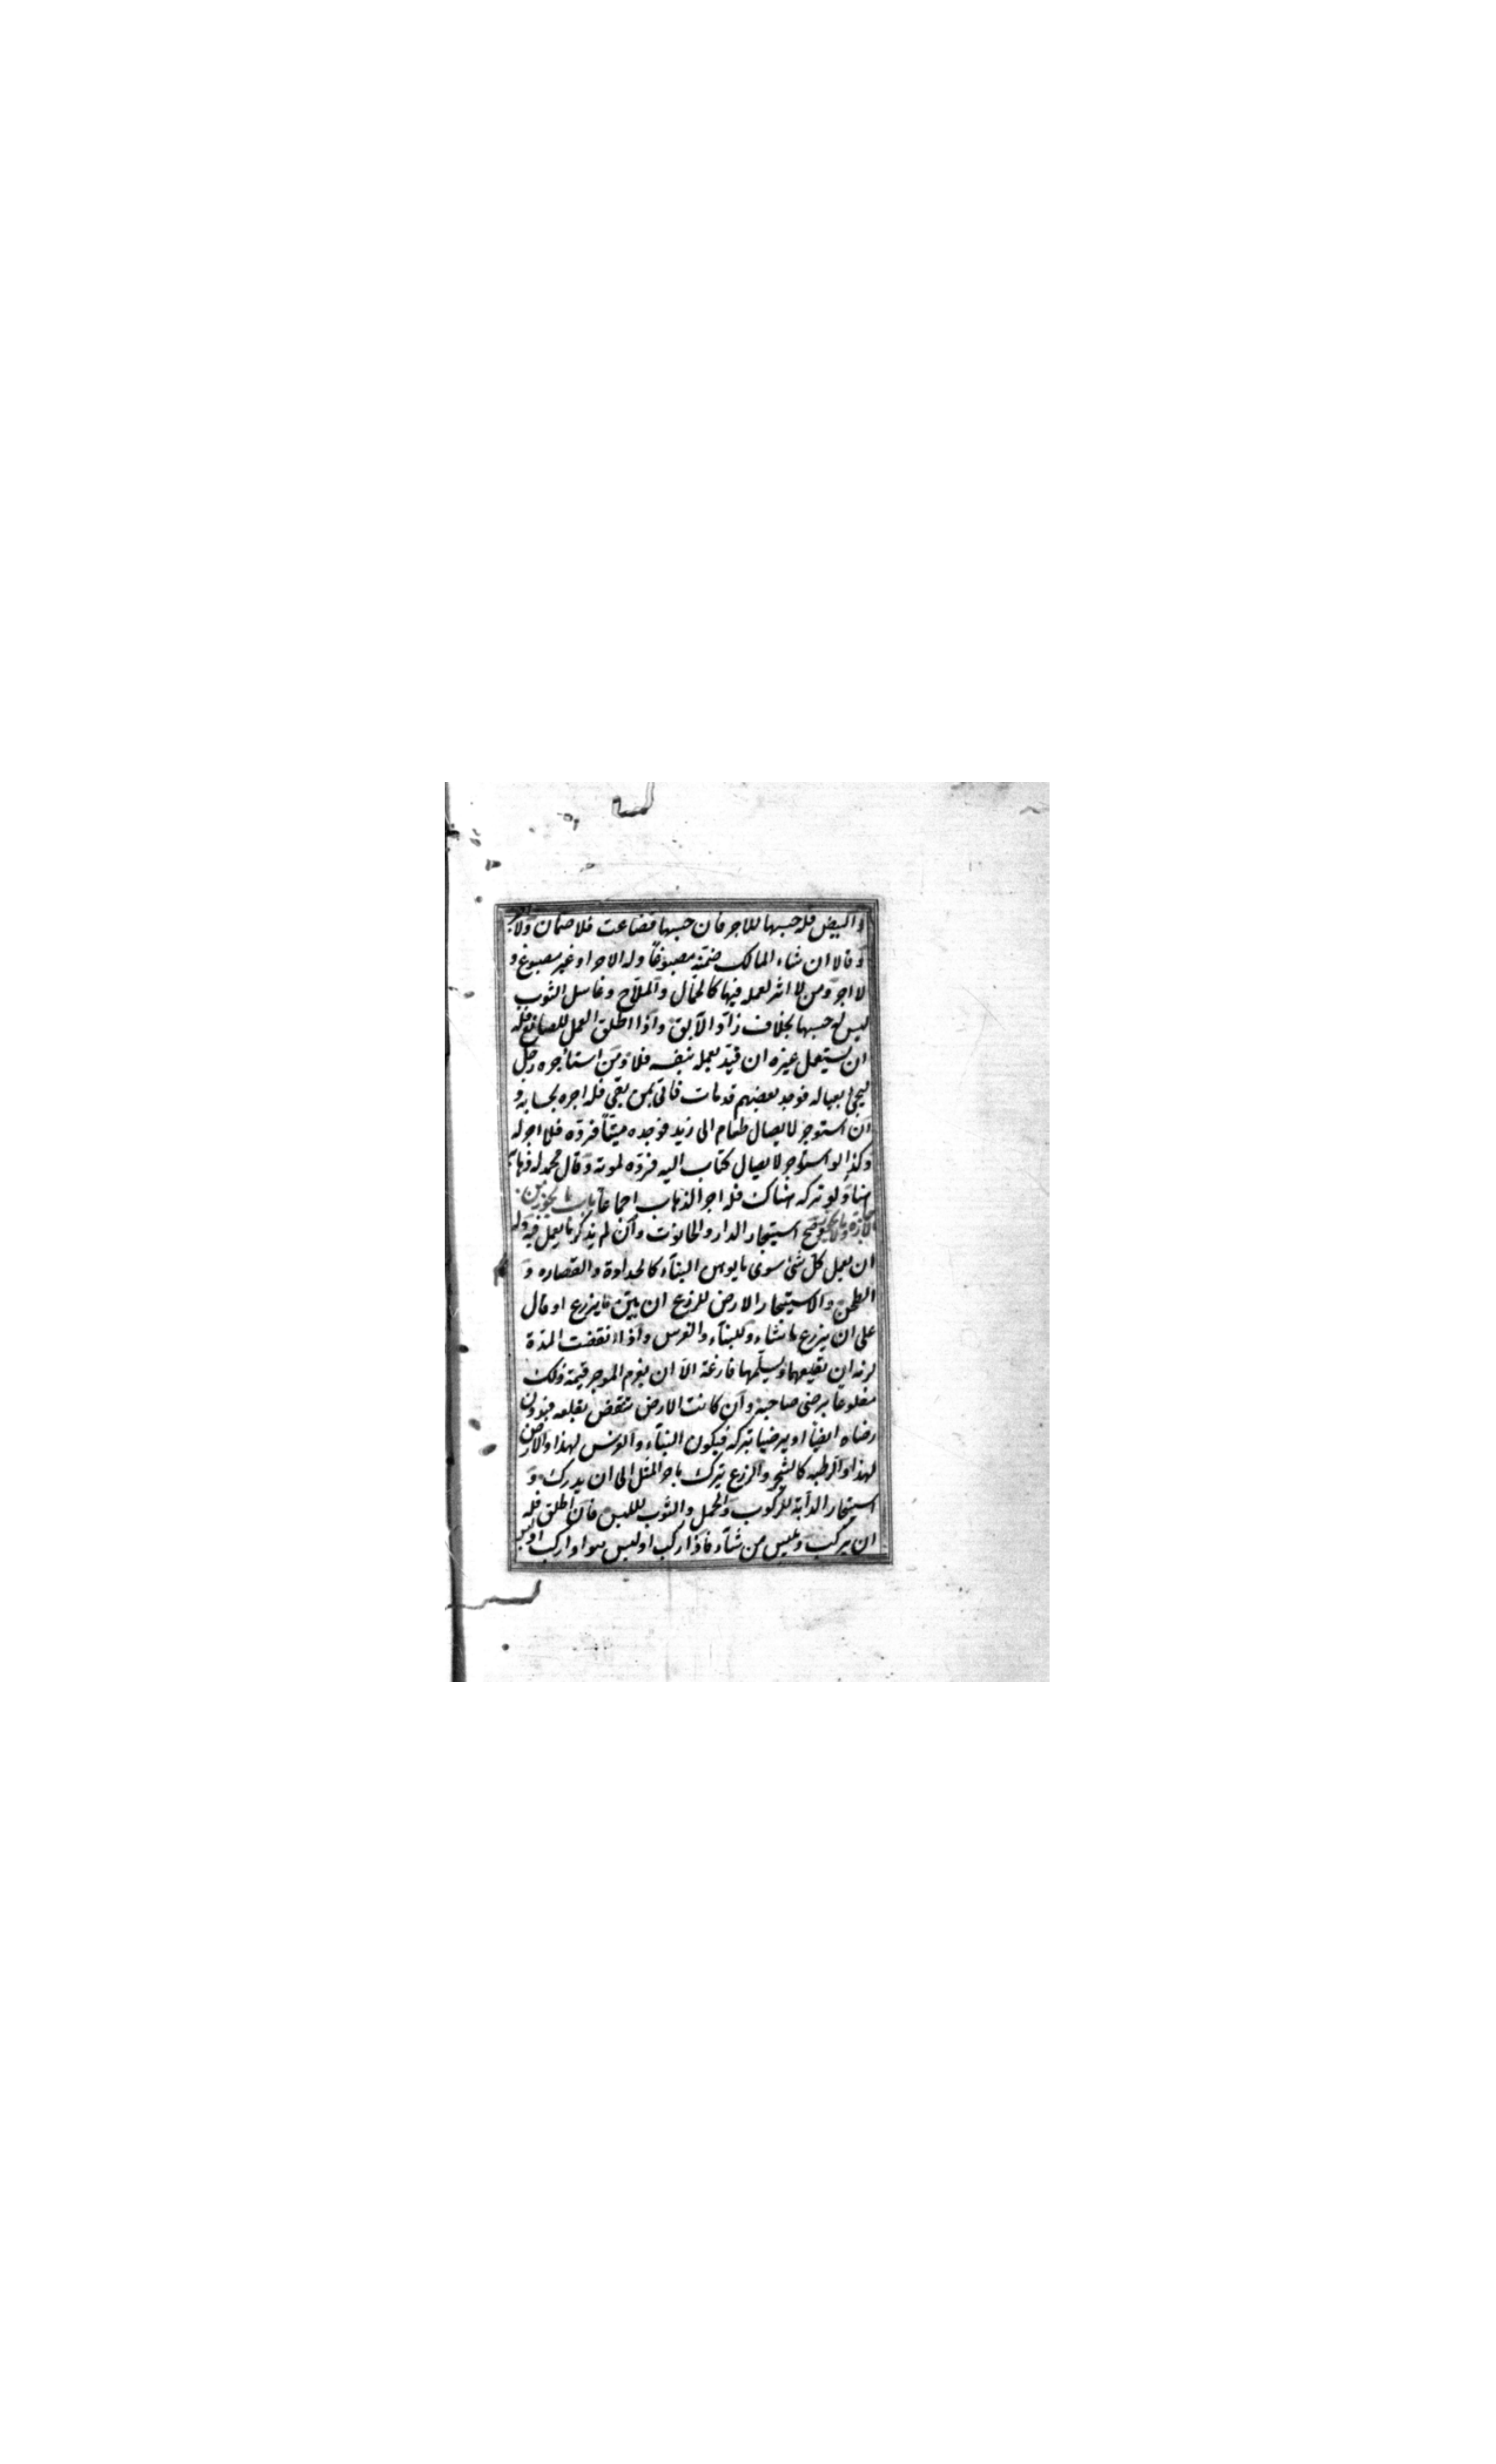 والبيض فله حبسها للاجر فان حبسها فضاعت فلا ضمان ولا اجر
وقالا ان شاء المالك ضمنه مصبوغاً وله الاجر او غير مصبوغ و
لا اجر ومن لا اثر لعمله فيها كالحمّال والملاّح وغاسل الثوب
ليس له حبسها بخلاف رادّ الآبق واذا اطلق العمل للصانع فله
ان يستعمل غيره ان قيّد بعمله بنفسه فلا ومن استأجره رجل
ليجئ بعياله فوجد بعضهم قد مات فاتى بمن بقى فله اجره بحسابه و
ان استوجر لايصال طعام الى زيد فوجده ميتاً فردّه فلا اجر له
وكذا لو استاجر لايصال كتاب اليه فردّه لموته وقال محمد له
هنا ولو تركه هناك فله اجر الذهاب اجماعاً باب ما يجوز من
الاجارة وما لا يجوز يصح استيجار الدار والحانوت وان لم يذكر ما يعمل فيه وله
ان يعمل كلّ شئ سوى ما يوهن البناء كالحدادة والقصاره و
الطحن والاستيجار الارض للزرع ان بيّن ما يزرع او قال
على ان يزرع ما شاء وللبناء والغرس واذا انقضت المدة
لزمه ان يقلعهما ويسلّمها فارغة الاّ ان يغرم الموجر قيمة ذلك
مقلوعاً برضى صاحبه وان كانت الارض تنقض بقلعه فبدون
رضاه ايضاً او يرضيا بتركه فيكون البناء والغرس لهذا والارض
لهذا والرطبة كالشجر والزرع يترك باجر المثل الى ان يدرك و
استيجار الدابة للركوب والحمل والثوب للبس فان اطلق فله
ان يركب ويلبس من شاء فاذا ركب او لبس هو او اركب او البس